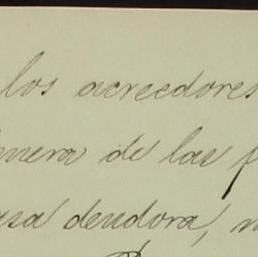 los acreedores
mera de las
asa deudora,